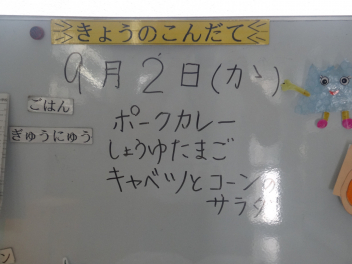 きょうのこんだて
9月2日(か)
ごはん
ぎゅうにゅう
ポークカレー
しょうゆたまご
キャベツとコーンの
サラダ
ン